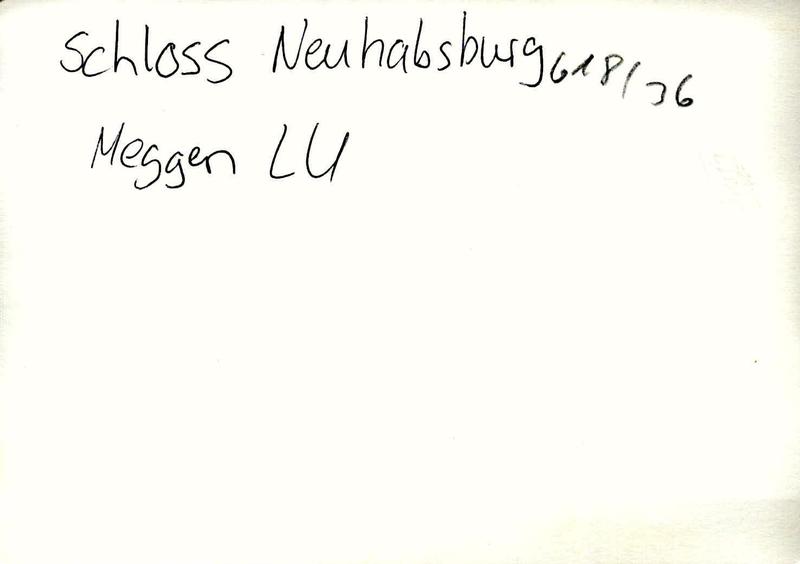 Schloss Neuhabsburg 618/36
Meggen LU